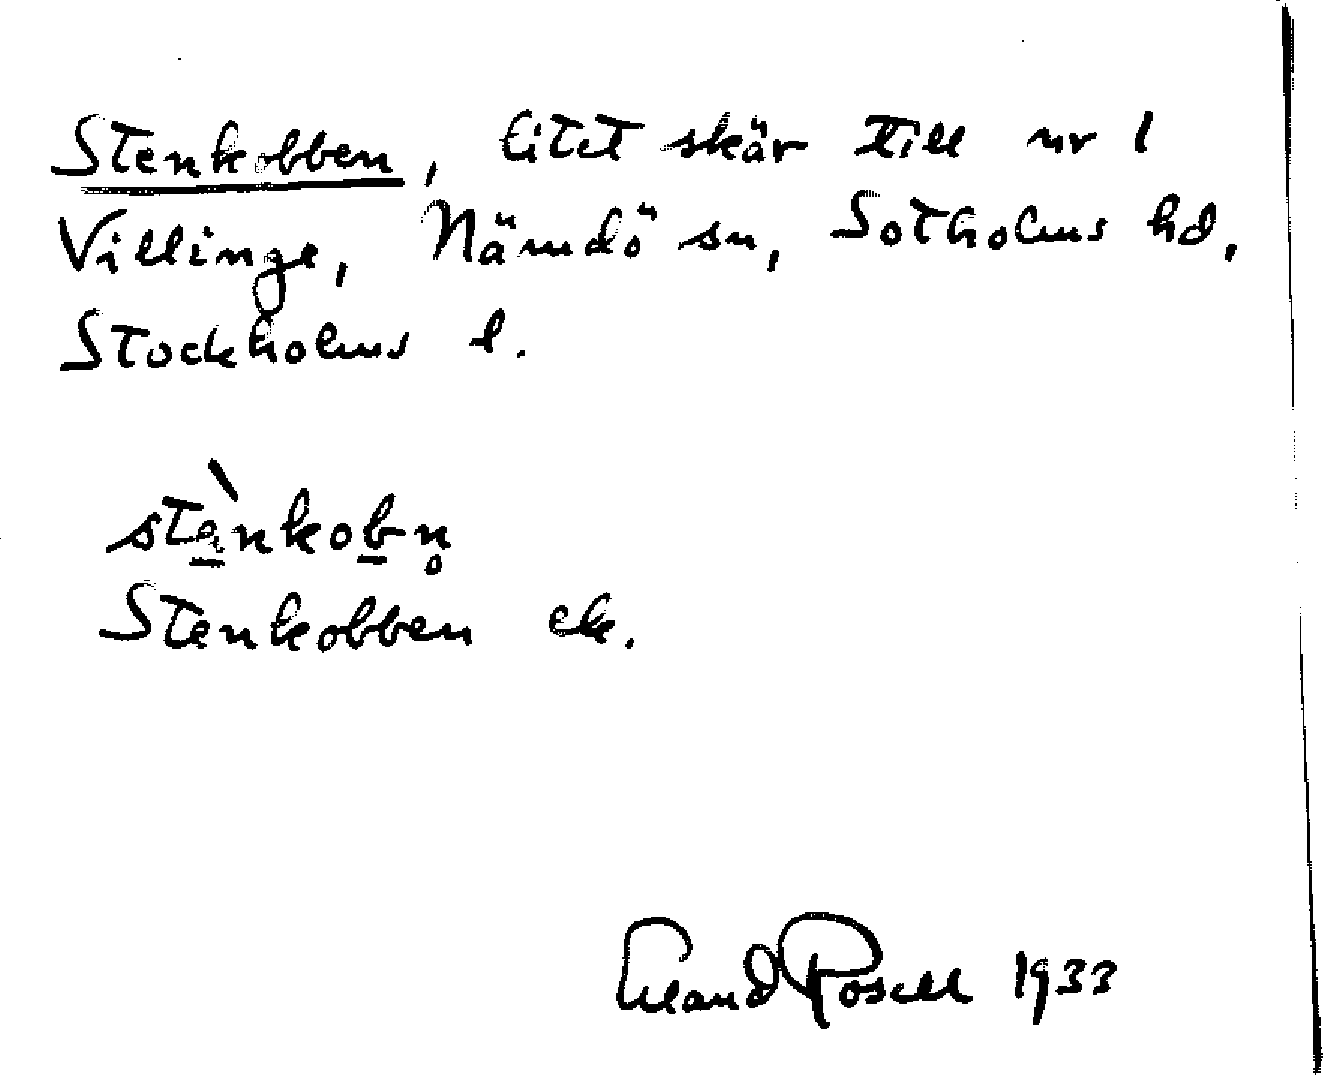 Stenkobben, litet skär till nr 1
Villinge, Nämdö sn, Sotholms hd,
Stockholms l.
stè̠nkob̠n̥
Stenkobben ek.
Erland Rosell 1933